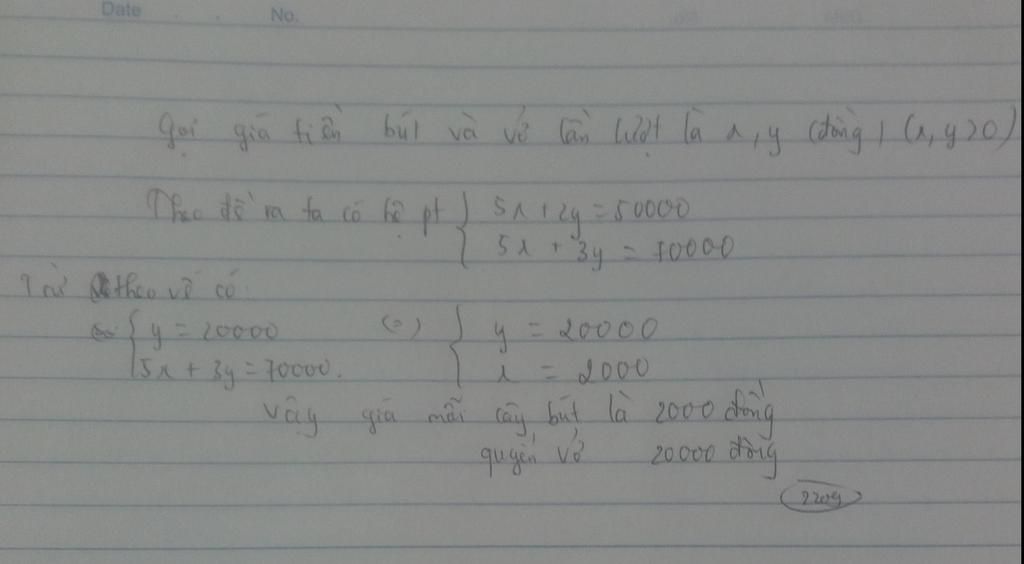 Date No.
Gọi giá tiền bút và vở lần lượt là x, y (đồng) (x, y>0)
Theo đề ra ta có hệ pt { 5x+2y=50000
5x + 3y = 70000
Trừ theo vế có
{ y = 20000 (=) { y = 20000
5x + 3y = 70000. x = 2000
Vậy giá mỗi cây bút là 2000 đồng
quyển vở 20000 đồng